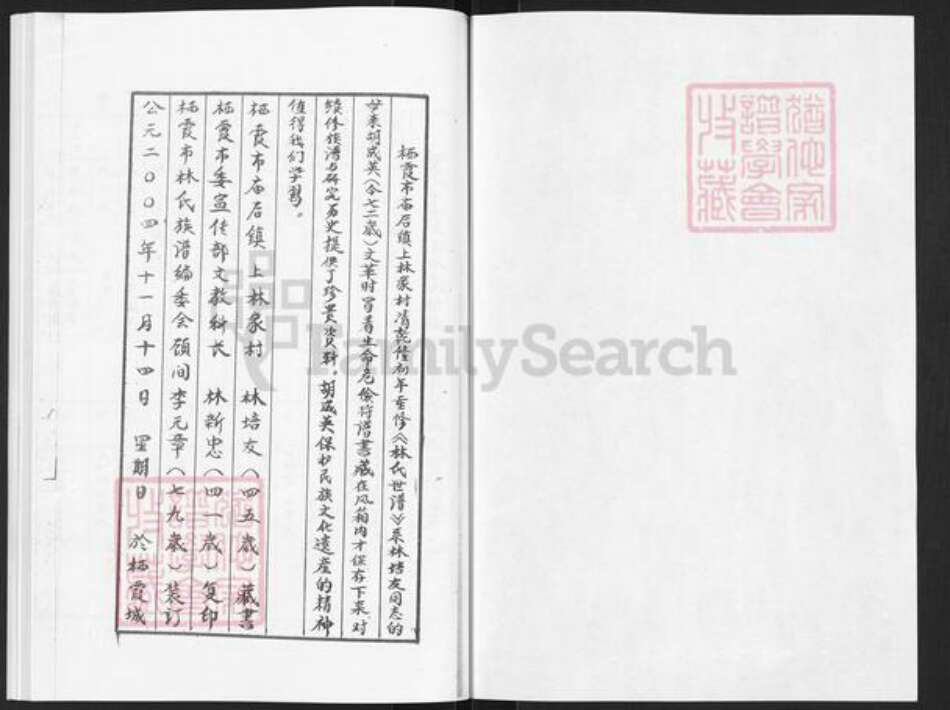 栖霞市庙后镇上林家村清乾隆初年重修《林氏世谱》系林培友同志的
母亲胡成英（今七二歲）文革时冒着生命危险将谱書藏在风箱内才保存下来，对
续修族谱与研究历史提供了珍贵资料。胡成英保护民族文化遗产的精神
值得我们学習。
栖霞市庙后镇上林家村 林培友（四五歲）藏書
栖霞市委宣传部文教科长 林新忠（四一歲）复印
栖霞市林氏族谱编委会顾问李元章（七九歲）装订
公元二〇〇四年十一月十四日 星期日 於栖霞城
譜學會
收藏
FamilySearch